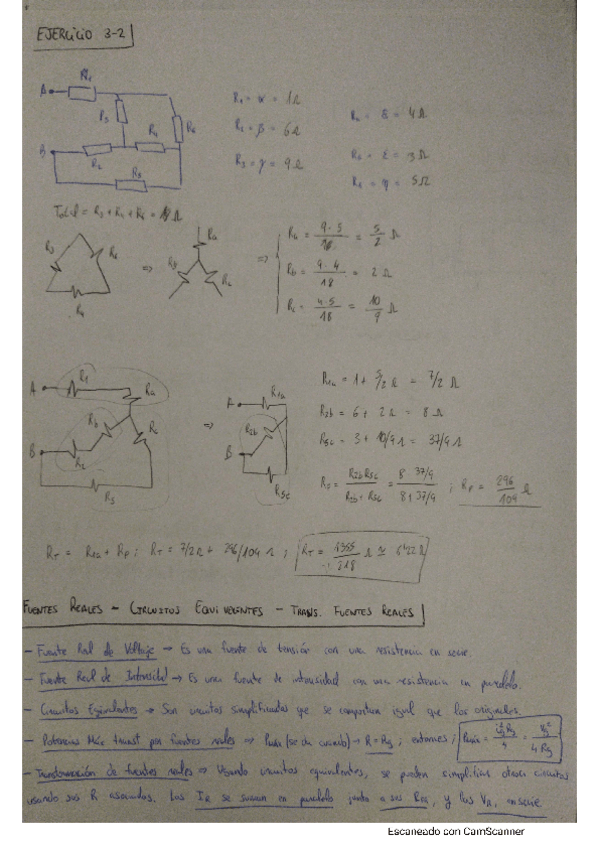 EJERCICIO 3-2
R1
A
R3
R4
R6
B
R2
R5
R1 = α = 1Ω
R2 = β = 6Ω
R3 = γ = 9Ω
R4 = δ = 4Ω
R5 = ε = 3Ω
R6 = η = 5Ω
Total = R3 + R4 + R6 = 18 Ω
R3 R6 R4 ⇒ Ra Rb Rc ⇒
Ra = 9·5/18 = 5/2 Ω
Rb = 9·4/18 = 2 Ω
Rc = 4·5/18 = 10/9 Ω
A R1 Ra
Rb Rc
B R2
R5
⇒
A R1a
R2b
B
R5c
R1a = 1 + 5/2 Ω = 7/2 Ω
R2b = 6 + 2 Ω = 8 Ω
R5c = 3 + 10/9 Ω = 37/9 Ω
= R2b R5c / R2b + R5c = 8 37/9 / 8 + 37/9 ; Rp = 296/109 Ω
RT = R1a + Rp ; RT = 7/2 Ω + 296/109 Ω ; RT = 1355/218 Ω ≃ 6'22 Ω
FUENTES REALES - CIRCUITOS EQUIVALENTES - TRANS. FUENTES REALES
- Fuente Real de Voltaje → Es una fuente de tensión con una resistencia en serie.
- Fuente Real de Intensidad → Es una fuente de intensidad con una resistencia en paralelo.
- Circuitos Equivalentes → Son circuitos simplificados que se comportan igual que los originales.
- Potencia Máx transf por fuentes reales ⇒ Pmáx (se da cuando) → R = Rg ; entonces ; Pmáx = Ig² Rg / 4 = Vg² / 4 Rg
- Transformación de fuentes reales ⇒ Usando circuitos equivalentes, se pueden simplificar otros circuitos
usando sus R asociadas. Las se suman en paralelo junto a sus y las en serie
Escaneado con CamScanner